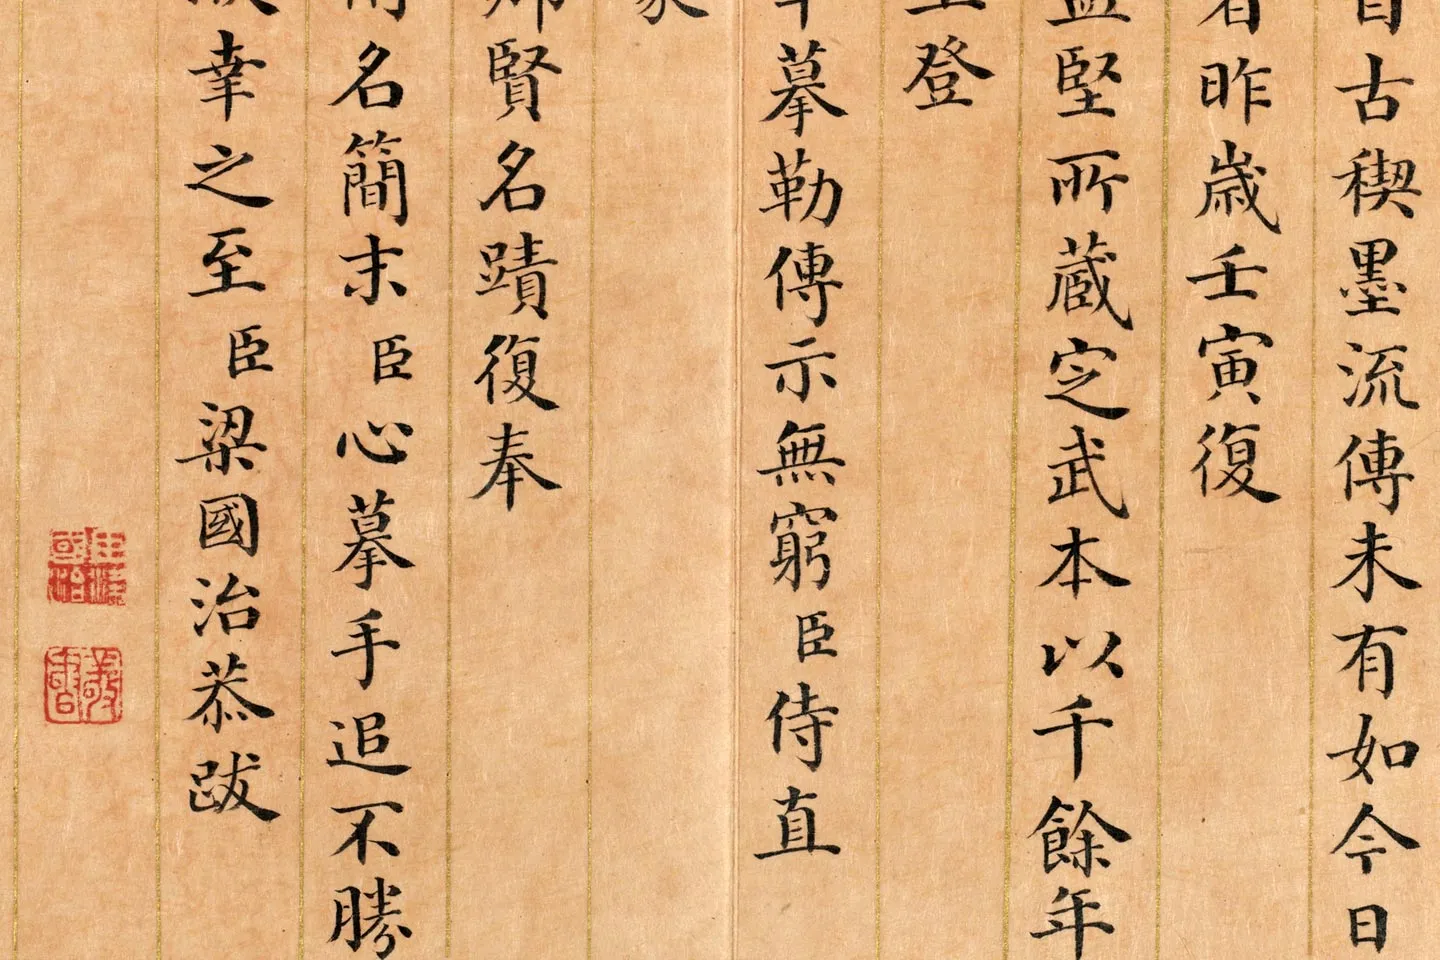 自古稧墨流傳未有如今日
者昨歳壬寅復
堅所藏定武本以千餘年
登
摹勒傳示無窮臣侍直
賢名蹟復奉
名簡末臣心摹手追不勝
幸之至臣梁國治恭跋
臣梁國治
敬書